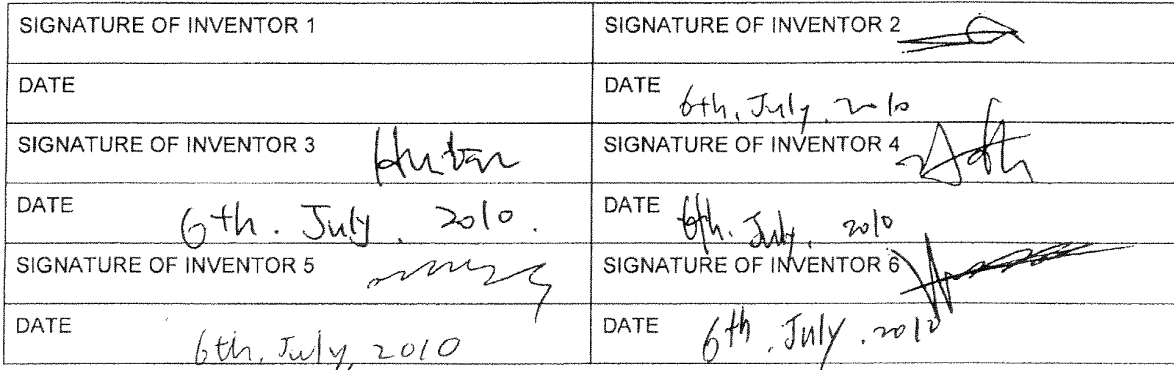 SIGNATURE OF INVENTOR 1 SIGNATURE OF INVENTOR 2
DATE DATE 6th. July. 2010
SIGNATURE OF INVENTOR 3 SIGNATURE OF INVENTOR 4
DATE 6th. July. 2010. DATE 6th. July. 2010
SIGNATURE OF INVENTOR 5 SIGNATURE OF INVENTOR 6
DATE 6th. July, 2010 DATE 6th. July. 2010